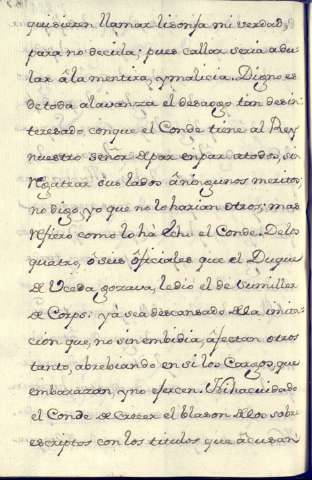 quisieren llamar lisonja mi verdad,
para no decirla; pues callar seria adu
lar â la mentira, y malicia. Digno es
de toda alavanza el desaogo tan desin
teresado, con que el Conde tiene al Rey
nuestro señor de par en par a todos, sin
regatear sus lados â ningunos meritos;
no digo yo que no lo harian otros; mas
refiero como lo hà hecho el Conde. De los
quatro, ò seis ôficiales que el Duque
de Uceda gozava, le diò el de Sumiller
de Corps: yà sea descansado de la imita
cion que, no sin embidia, âfectan otros
tanto, abrebiando en si los Cargos, que
embarazan, y no ejercen. Ni ha cuidado
el Conde de crecer el blason de los sobre
escriptos con los titulos que âcusan